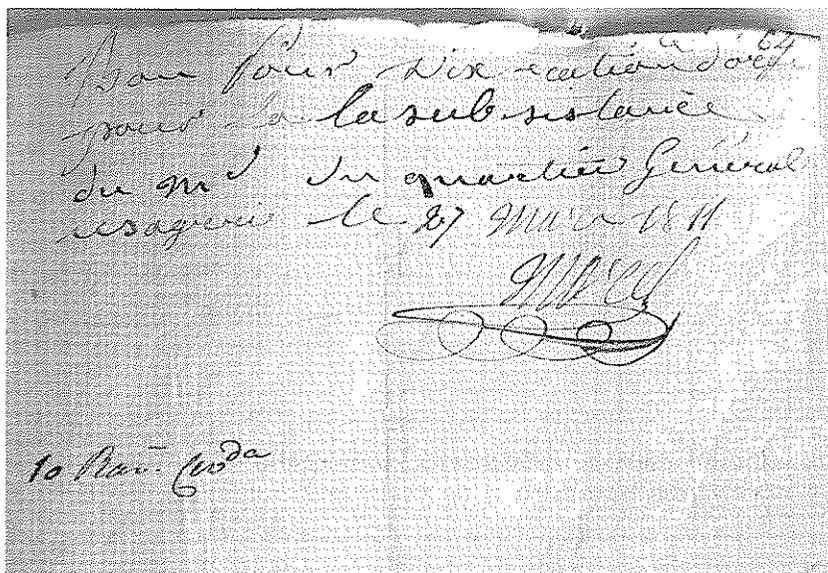 64
Bon Pour Dix ration d'orge
pour la subsistance
du md du quartier Général
le 27 Mars 1811
10 Rac.